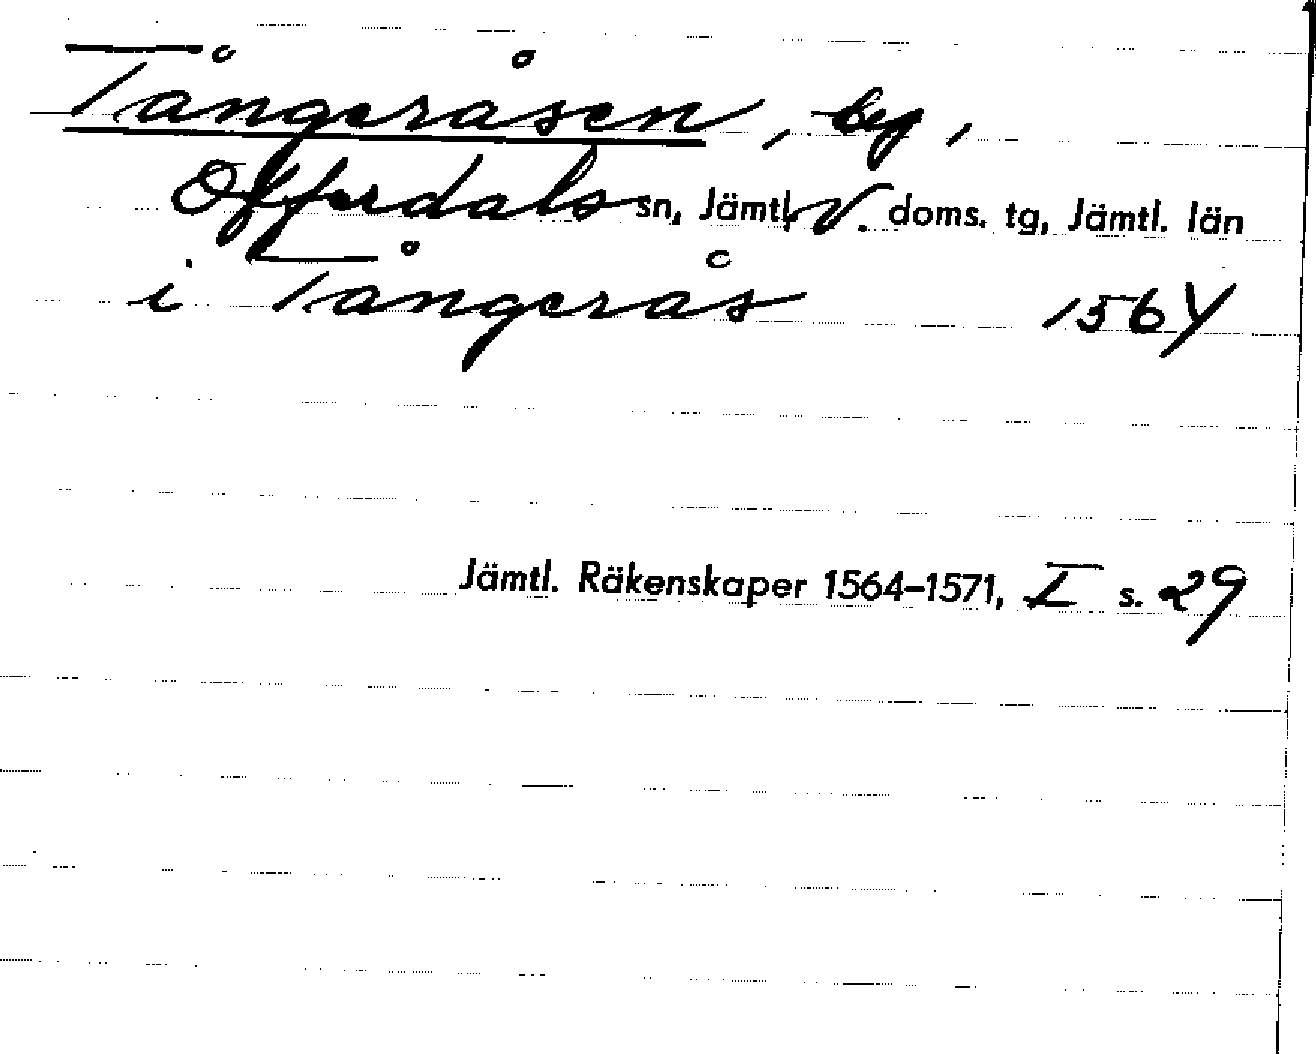 Tångeråsen, by,
Offerdals sn, Jämtl. V. doms. tg, Jämtl. län
i Tångerås 1564
Jämtl. Räkenskaper 1564–1571, I s. 29